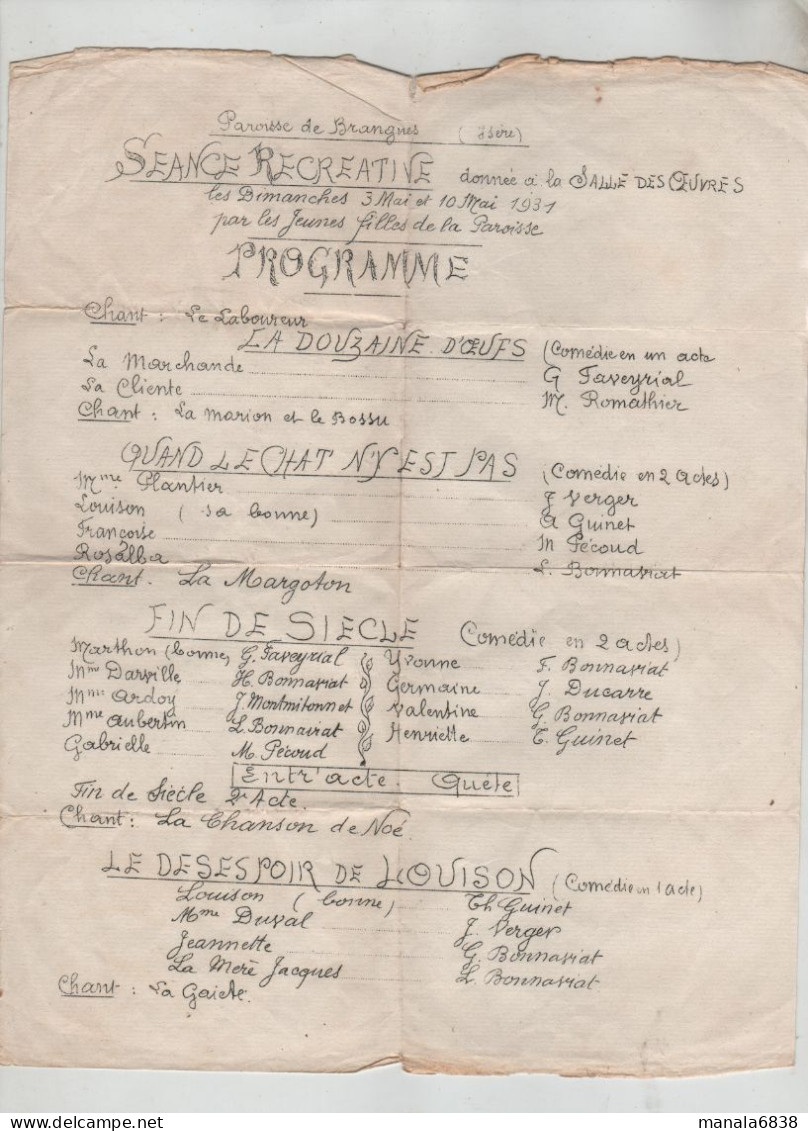 Paroisse de Brangues (Isère)
SEANCE RECREATIVE donnée à la SALLE DES ŒUVRES
les Dimanches 3 Mai et 10 Mai 1931
par les Jeunes filles de la Paroisse
PROGRAMME
Chant : Le Laboureur
LA DOUZAINE D'ŒUFS (Comédie en un acte
La Marchande G Faveyrial
La Cliente M. Romathier
Chant : La Marion et le Bossu
QUAND LE CHAT N'Y EST PAS (Comédie en 2 actes)
Mme Plantier J Verger
Louison (sa bonne) A Guinet
Françoise M Pécoud
Rosalba L. Bonnaviat
Chant. La Margoton
FIN DE SIECLE Comédie en 2 actes)
Marthon (bonne) G. Faveyrial Yvonne F. Bonnaviat
Mme Darville H. Bonnaviat Germaine J. Ducarre
Mme Ardoy J Montmitonnet Valentine G. Bonnaviat
Mme Aubertin L. Bonnaviat Henriette T. Guinet
Gabrielle M. Pécoud
Entr'acte. Quéte
Fin de Siècle 2e Acte.
Chant : La Chanson de Noé.
LE DESESPOIR DE LOUISON (Comédie en 1 acte)
Louison (bonne) Th Guinet
Mme Duval J. Verger
Jeannette G. Bonnaviat
La Merè Jacques L. Bonnaviat
Chant : La Gaieté.
manala6838